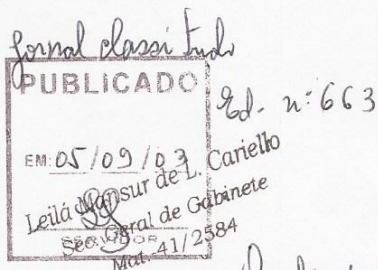 Jornal classi tudo
PUBLICADO
Ed. nº 663
EM: 05/09/07
Leilá Mansur de L. Cariello
Sec. Geral de Gabinete
Mat. 41/2584